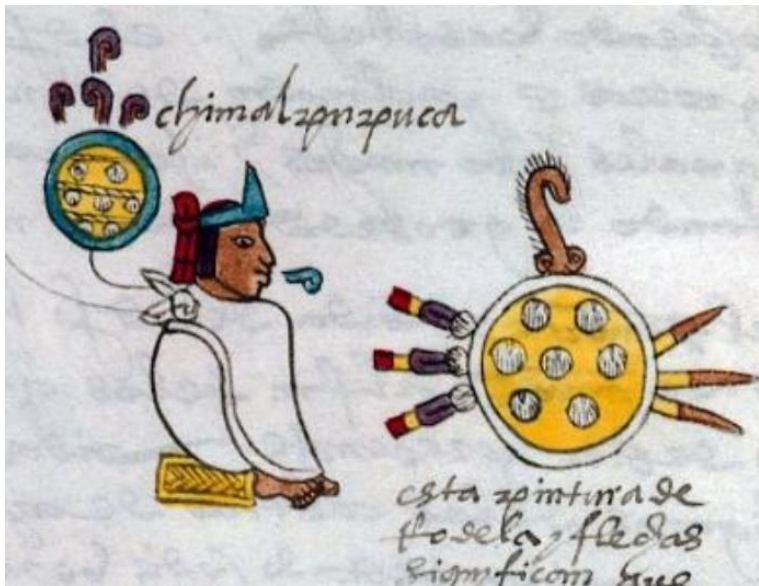 chimalpupuca
esta pintura de
rodela y flechas
significan que